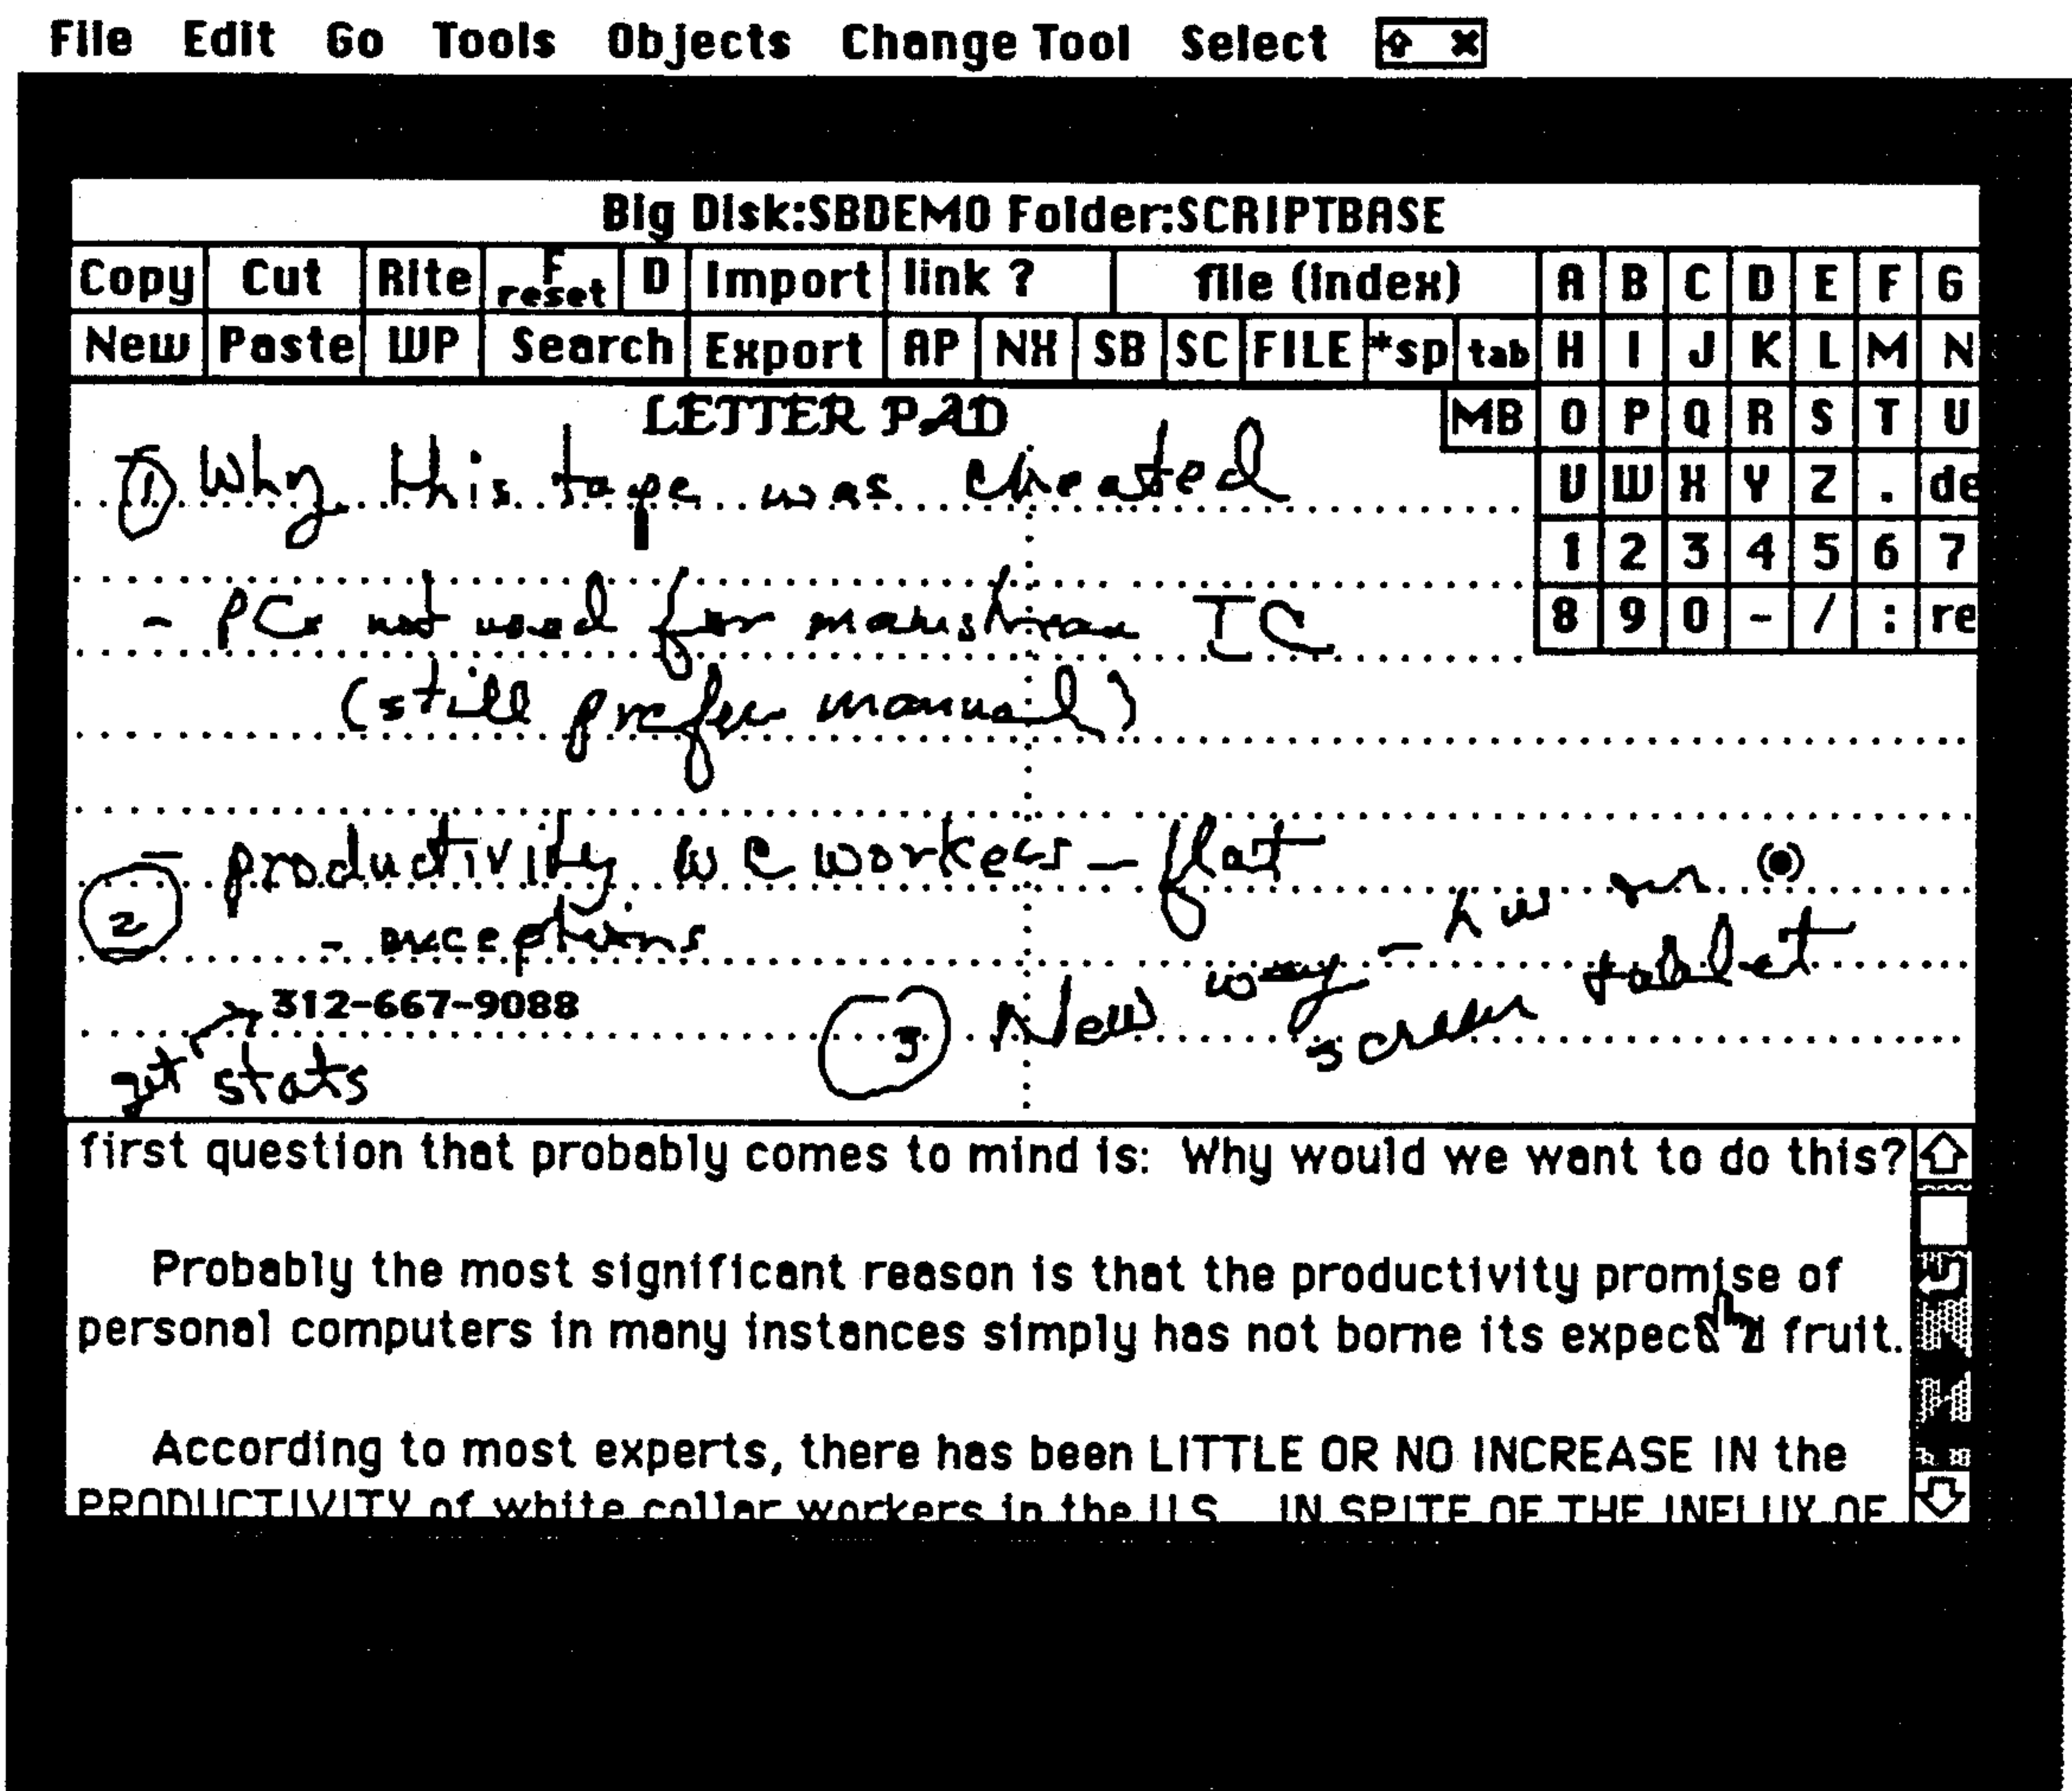 File Edit Go Tools Objects Change Tool Select
Big Disk:SBDEMO Folder:SCRIPTBASE
Copy Cut Rite F reset D Import link ? file (index) A B C D E F G
New Paste WP Search Export AP NX SB SC FILE *sp tab H I J K L M N
LETTER PAD MB O P Q R S T U
V W X Y Z . de
1 2 3 4 5 6 7
8 9 0 - / : re
① Why this tape was created
- PCs not used for mainstream IC
(still prefer manual)
- productivity WC workers - flat
②
- exceptions
312-667-9088
get stats
③ New way - hw on
screen tablet
first question that probably comes to mind is: Why would we want to do this?
Probably the most significant reason is that the productivity promise of
personal computers in many instances simply has not borne its fruit.
According to most experts, there has been LITTLE OR NO INCREASE IN the
PRODUCTIVITY of white collar workers in the U.S. IN SPITE OF THE INFLUX OF